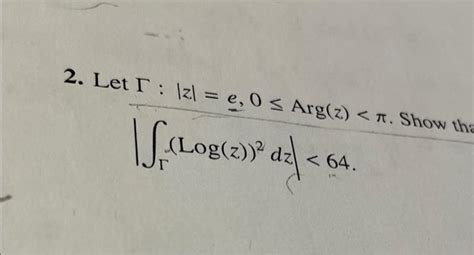 2. Let Γ : |z| = e, 0 ≤ Arg(z) < π. Show tha
|∫_Γ (Log(z))² dz| < 64.